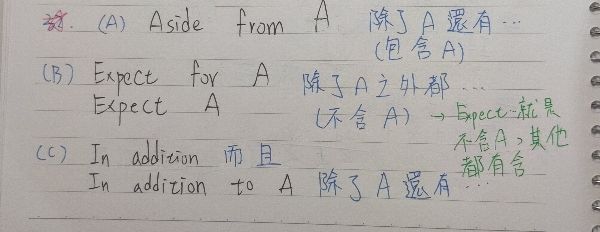 註. (A) Aside from A 除了A還有…
(包含A)
(B) Expect for A 除了A之外都…
Expect A (不含A) → Expect就是
不含A，其他
都有含
(C) In addition 而且
In addition to A 除了A還有…